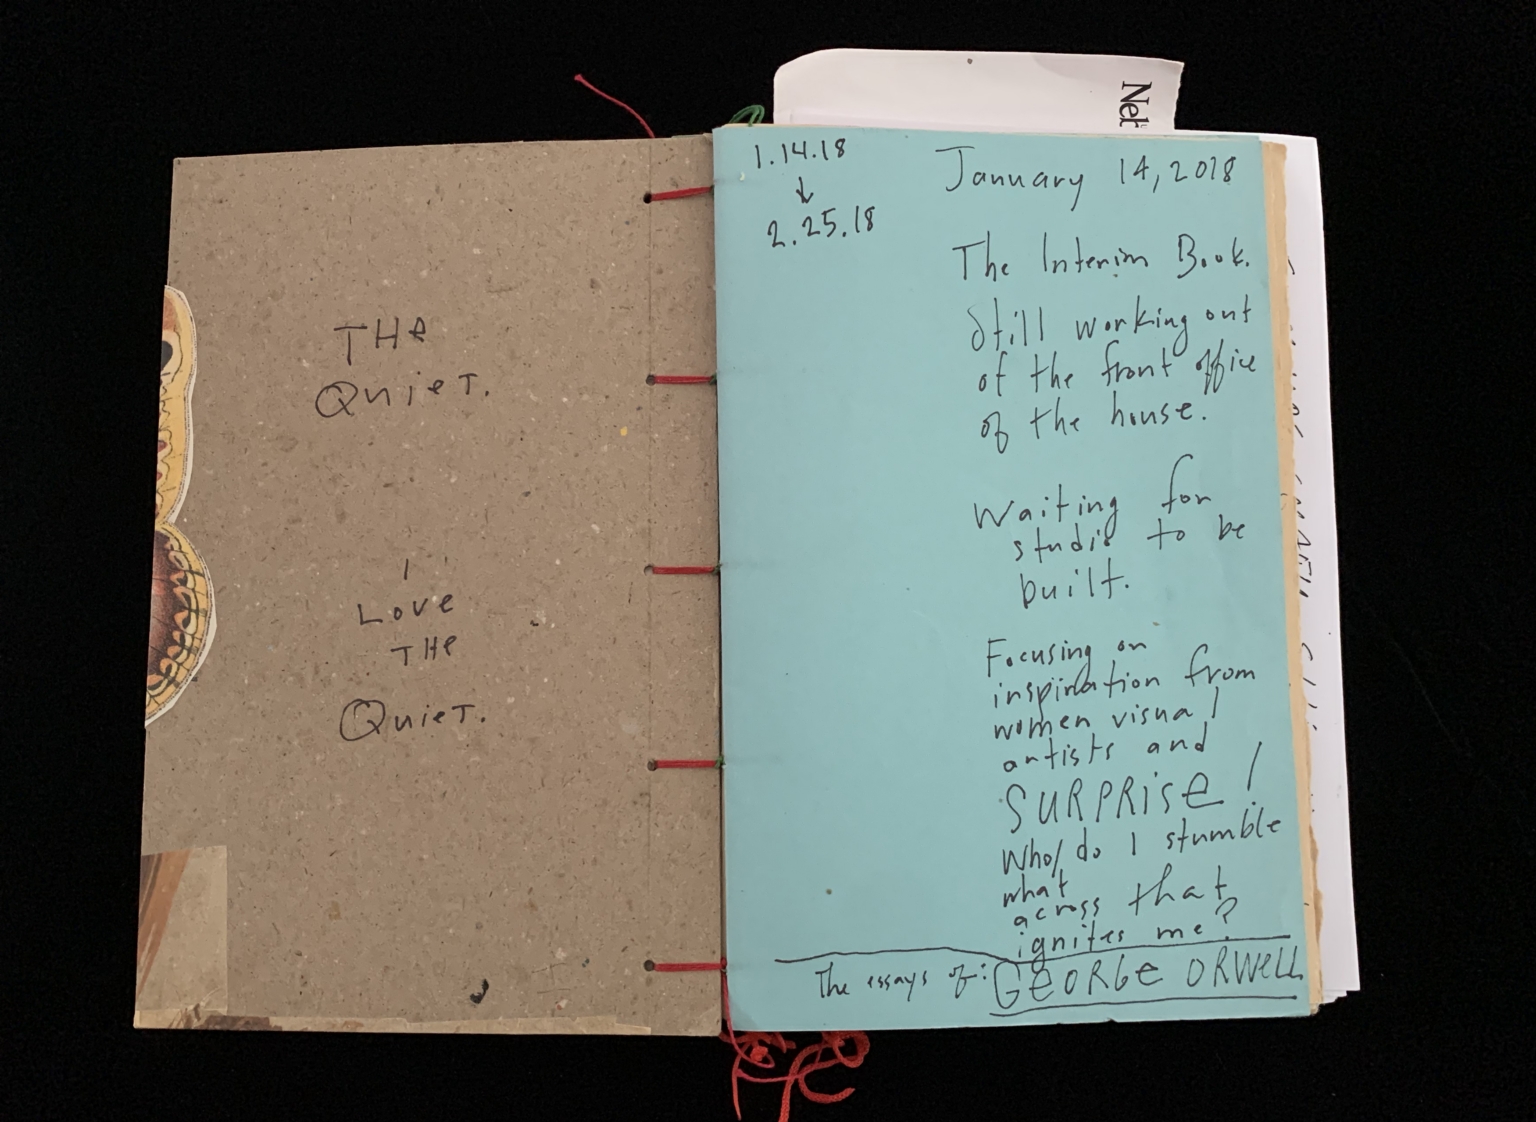 THE
QUIET.
I
LOVE
THE
QUIET.
1.14.18
↓
2.25.18
January 14, 2018
The Interim Book.
Still working out
of the front office
of the house.
Waiting for
studio to be
built.
Focusing on
inspiration from
women visual
artists and
SURPRISE!
Who/ do I stumble
what
across that
ignites me?
The essays of: GEORGE ORWELL
Neb